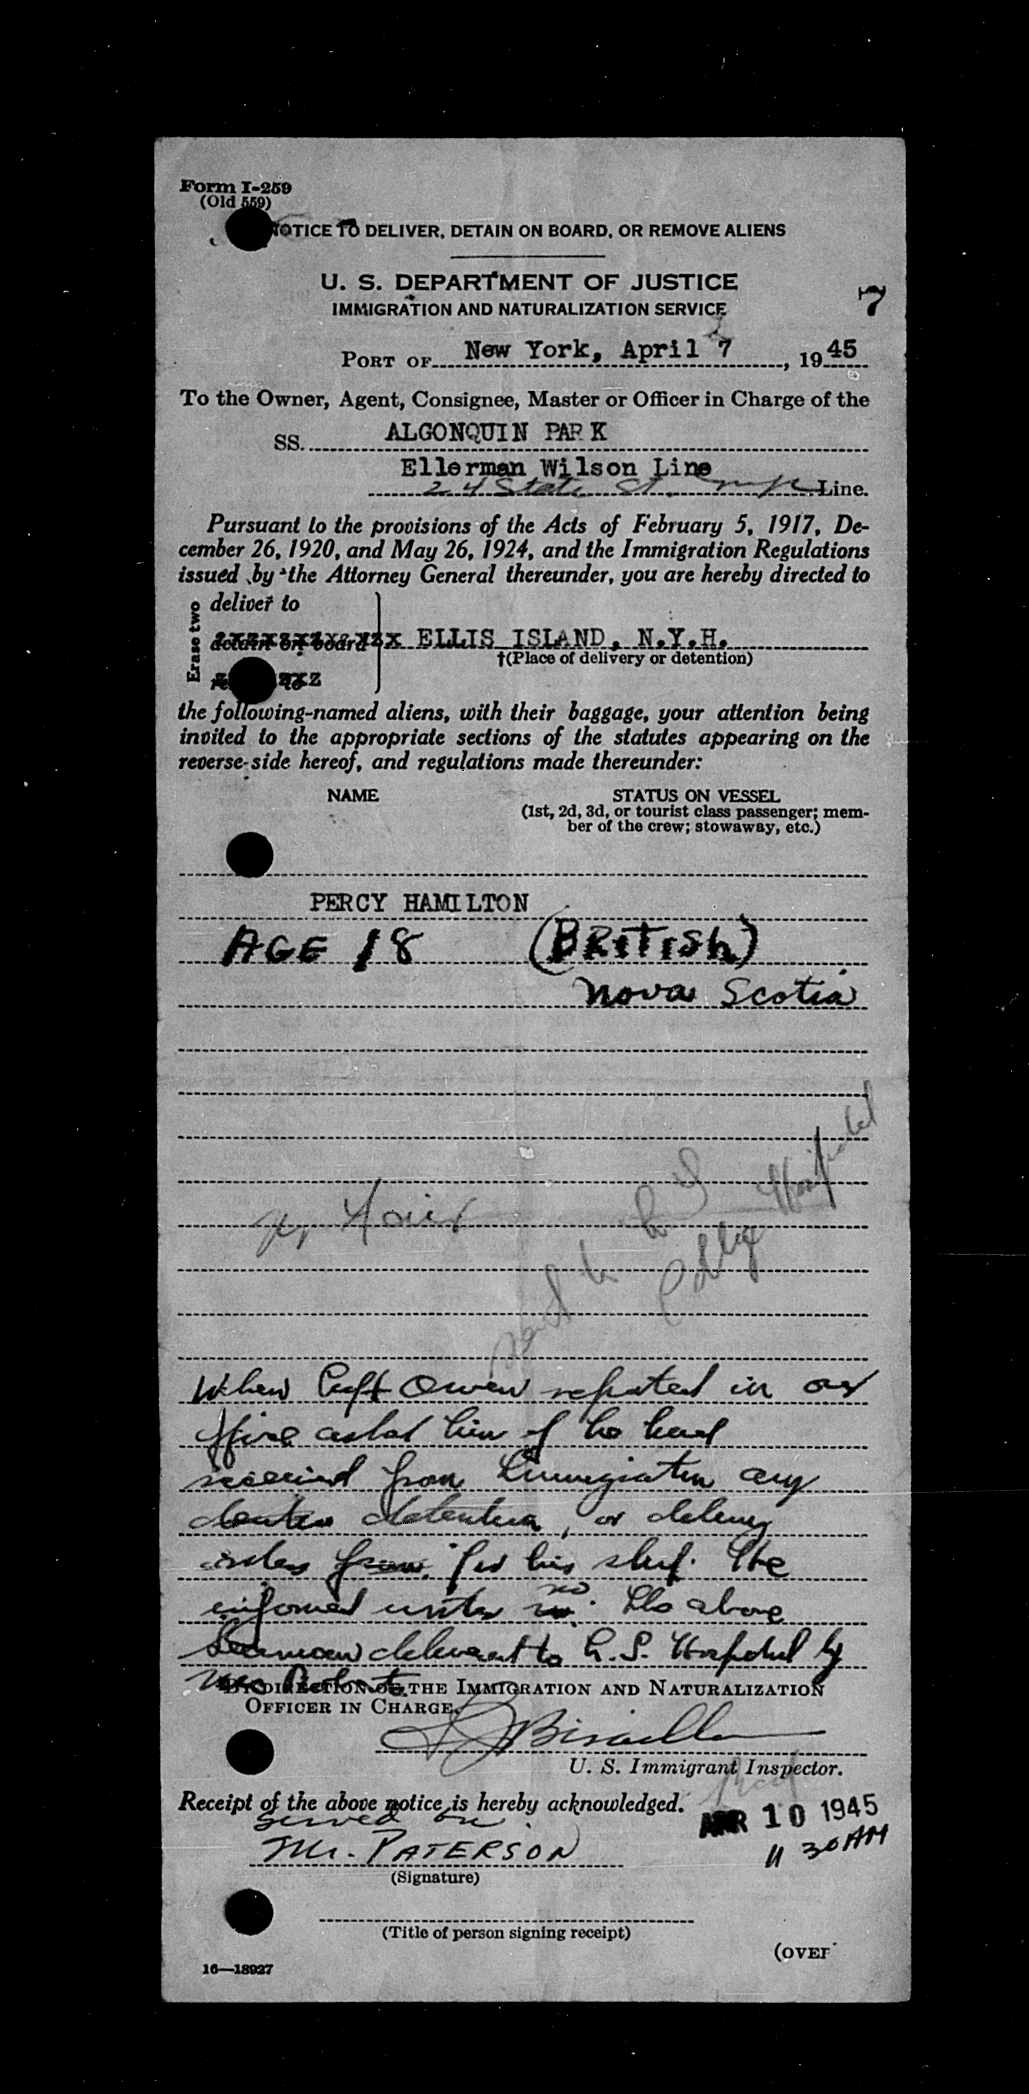 Form I-259
(Old 559)
NOTICE TO DELIVER, DETAIN ON BOARD, OR REMOVE ALIENS
U. S. DEPARTMENT OF JUSTICE
IMMIGRATION AND NATURALIZATION SERVICE
7
PORT OF New York, April 7, 1945
To the Owner, Agent, Consignee, Master or Officer in Charge of the
SS. ALGONQUIN PARK
Ellerman Wilson Line
24 State St. Line.
Pursuant to the provisions of the Acts of February 5, 1917, De-
cember 26, 1920, and May 26, 1924, and the Immigration Regulations
issued by the Attorney General thereunder, you are hereby directed to
Erase two
deliver to
detain on board ELLIS ISLAND, N.Y.H.
†(Place of delivery or detention)
the following-named aliens, with their baggage, your attention being
invited to the appropriate sections of the statutes appearing on the
reverse side hereof, and regulations made thereunder:
NAME STATUS ON VESSEL
(1st, 2d, 3d, or tourist class passenger; mem-
ber of the crew; stowaway, etc.)
PERCY HAMILTON
AGE 18 (BRITISH)
Nova Scotia
sent to
Hospital
When Capt Owen reported in our
office asked him if he had
received from Immigration any
detention, or delivery
orders from for his ship. He
informed writer no. The above
Seaman delivered to Hospital by
BY DIRECTION OF THE IMMIGRATION AND NATURALIZATION
OFFICER IN CHARGE.
U. S. Immigrant Inspector.
Receipt of the above notice is hereby acknowledged.
served on
Mr. PATERSON
APR 10 1945
11 30 AM
(Signature)
(Title of person signing receipt)
(OVER
16—18927